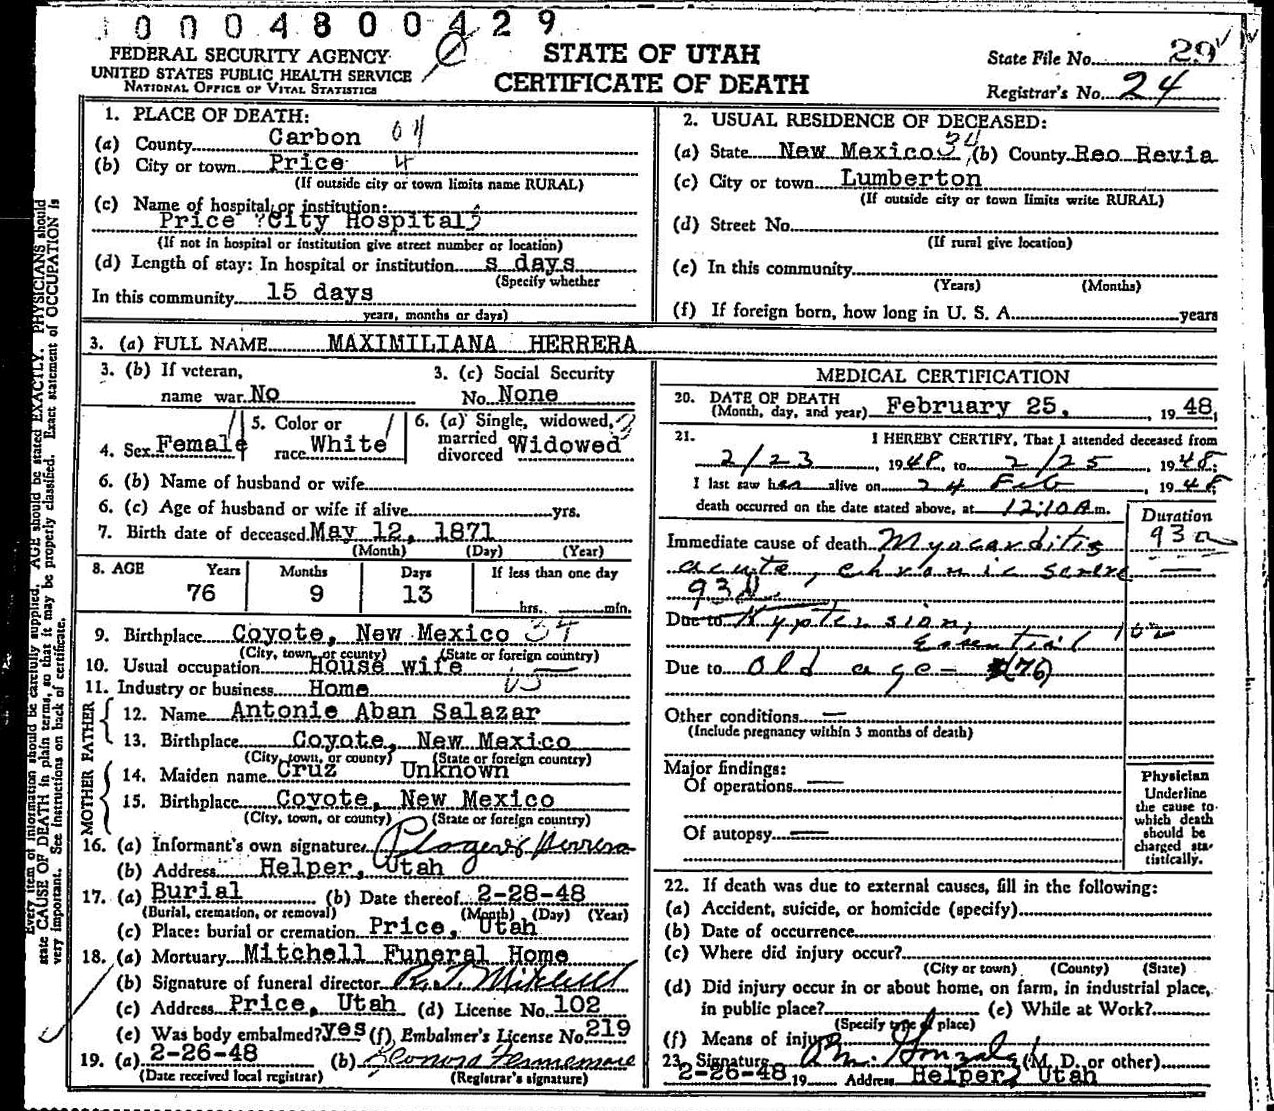 0004800429
FEDERAL SECURITY AGENCY
UNITED STATES PUBLIC HEALTH SERVICE
NATIONAL OFFICE OF VITAL STATISTICS
STATE OF UTAH
CERTIFICATE OF DEATH
State File No. 29
Registrar's No. 24
1. PLACE OF DEATH:
(a) County Carbon 04
(b) City or town Price 4
(If outside city or town limits name RURAL)
(c) Name of hospital or institution:
Price City Hospital
(If not in hospital or institution give street number or location)
(d) Length of stay: In hospital or institution s days
(Specify whether
In this community 15 days
years, months or days)
2. USUAL RESIDENCE OF DECEASED:
(a) State New Mexico 34 (b) County Reo Revia
(c) City or town Lumberton
(If outside city or town limits write RURAL)
(d) Street No.
(If rural give location)
(e) In this community
(Years) (Months)
(f) If foreign born, how long in U. S. A. years
3. (a) FULL NAME MAXIMILIANA HERRERA
3. (b) If veteran,
name war No
3. (c) Social Security
No. None
4. Sex Female
5. Color or
race White
6. (a) Single, widowed,
married
divorced Widowed
6. (b) Name of husband or wife
6. (c) Age of husband or wife if alive yrs.
7. Birth date of deceased May 12, 1871
(Month) (Day) (Year)
8. AGE Years Months Days If less than one day
76 9 13 hrs. min.
9. Birthplace Coyote, New Mexico 34
(City, town, or county) (State or foreign country)
10. Usual occupation House wife
11. Industry or business Home
FATHER
12. Name Antonie Aban Salazar
13. Birthplace Coyote, New Mexico
(City, town, or county) (State or foreign country)
MOTHER
14. Maiden name Cruz Unknown
15. Birthplace Coyote, New Mexico
(City, town, or county) (State or foreign country)
16. (a) Informant's own signature Herrera
(b) Address Helper, Utah
17. (a) Burial (b) Date thereof 2-28-48
(Burial, cremation, or removal) (Month) (Day) (Year)
(c) Place: burial or cremation Price, Utah
18. (a) Mortuary Mitchell Funeral Home
(b) Signature of funeral director R. T. Mitchell
(c) Address Price, Utah (d) License No. 102
(e) Was body embalmed? yes (f) Embalmer's License No. 219
19. (a) 2-26-48 (b) Fennemore
(Date received local registrar) (Registrar's signature)
MEDICAL CERTIFICATION
20. DATE OF DEATH
(Month, day, and year) February 25, 1948
21. I HEREBY CERTIFY, That I attended deceased from
2/23, 1948, to 2/25, 1948;
I last saw her alive on 24 Feb 1948
death occurred on the date stated above, at 12:10 A.m.
Duration
Immediate cause of death Myocarditis 93
acute, chronic severe
93d
Due to Hypertension,
Essential 102
Due to Old age - (76)
Other conditions
(Include pregnancy within 3 months of death)
Major findings:
Of operations
Of autopsy
Physician
Underline
the cause to
which death
should be
charged sta-
tistically.
22. If death was due to external causes, fill in the following:
(a) Accident, suicide, or homicide (specify)
(b) Date of occurrence
(c) Where did injury occur?
(City or town) (County) (State)
(d) Did injury occur in or about home, on farm, in industrial place,
in public place? (e) While at Work?
(Specify type of place)
(f) Means of injury
23. Signature (M. D. or other)
2-26-48 19 Address Helper, Utah
Every item of information should be carefully supplied. AGE should be stated EXACTLY. PHYSICIANS should
state CAUSE OF DEATH in plain terms, so that it may be properly classified. Exact statement of OCCUPATION is
very important. See instructions on back of certificate.